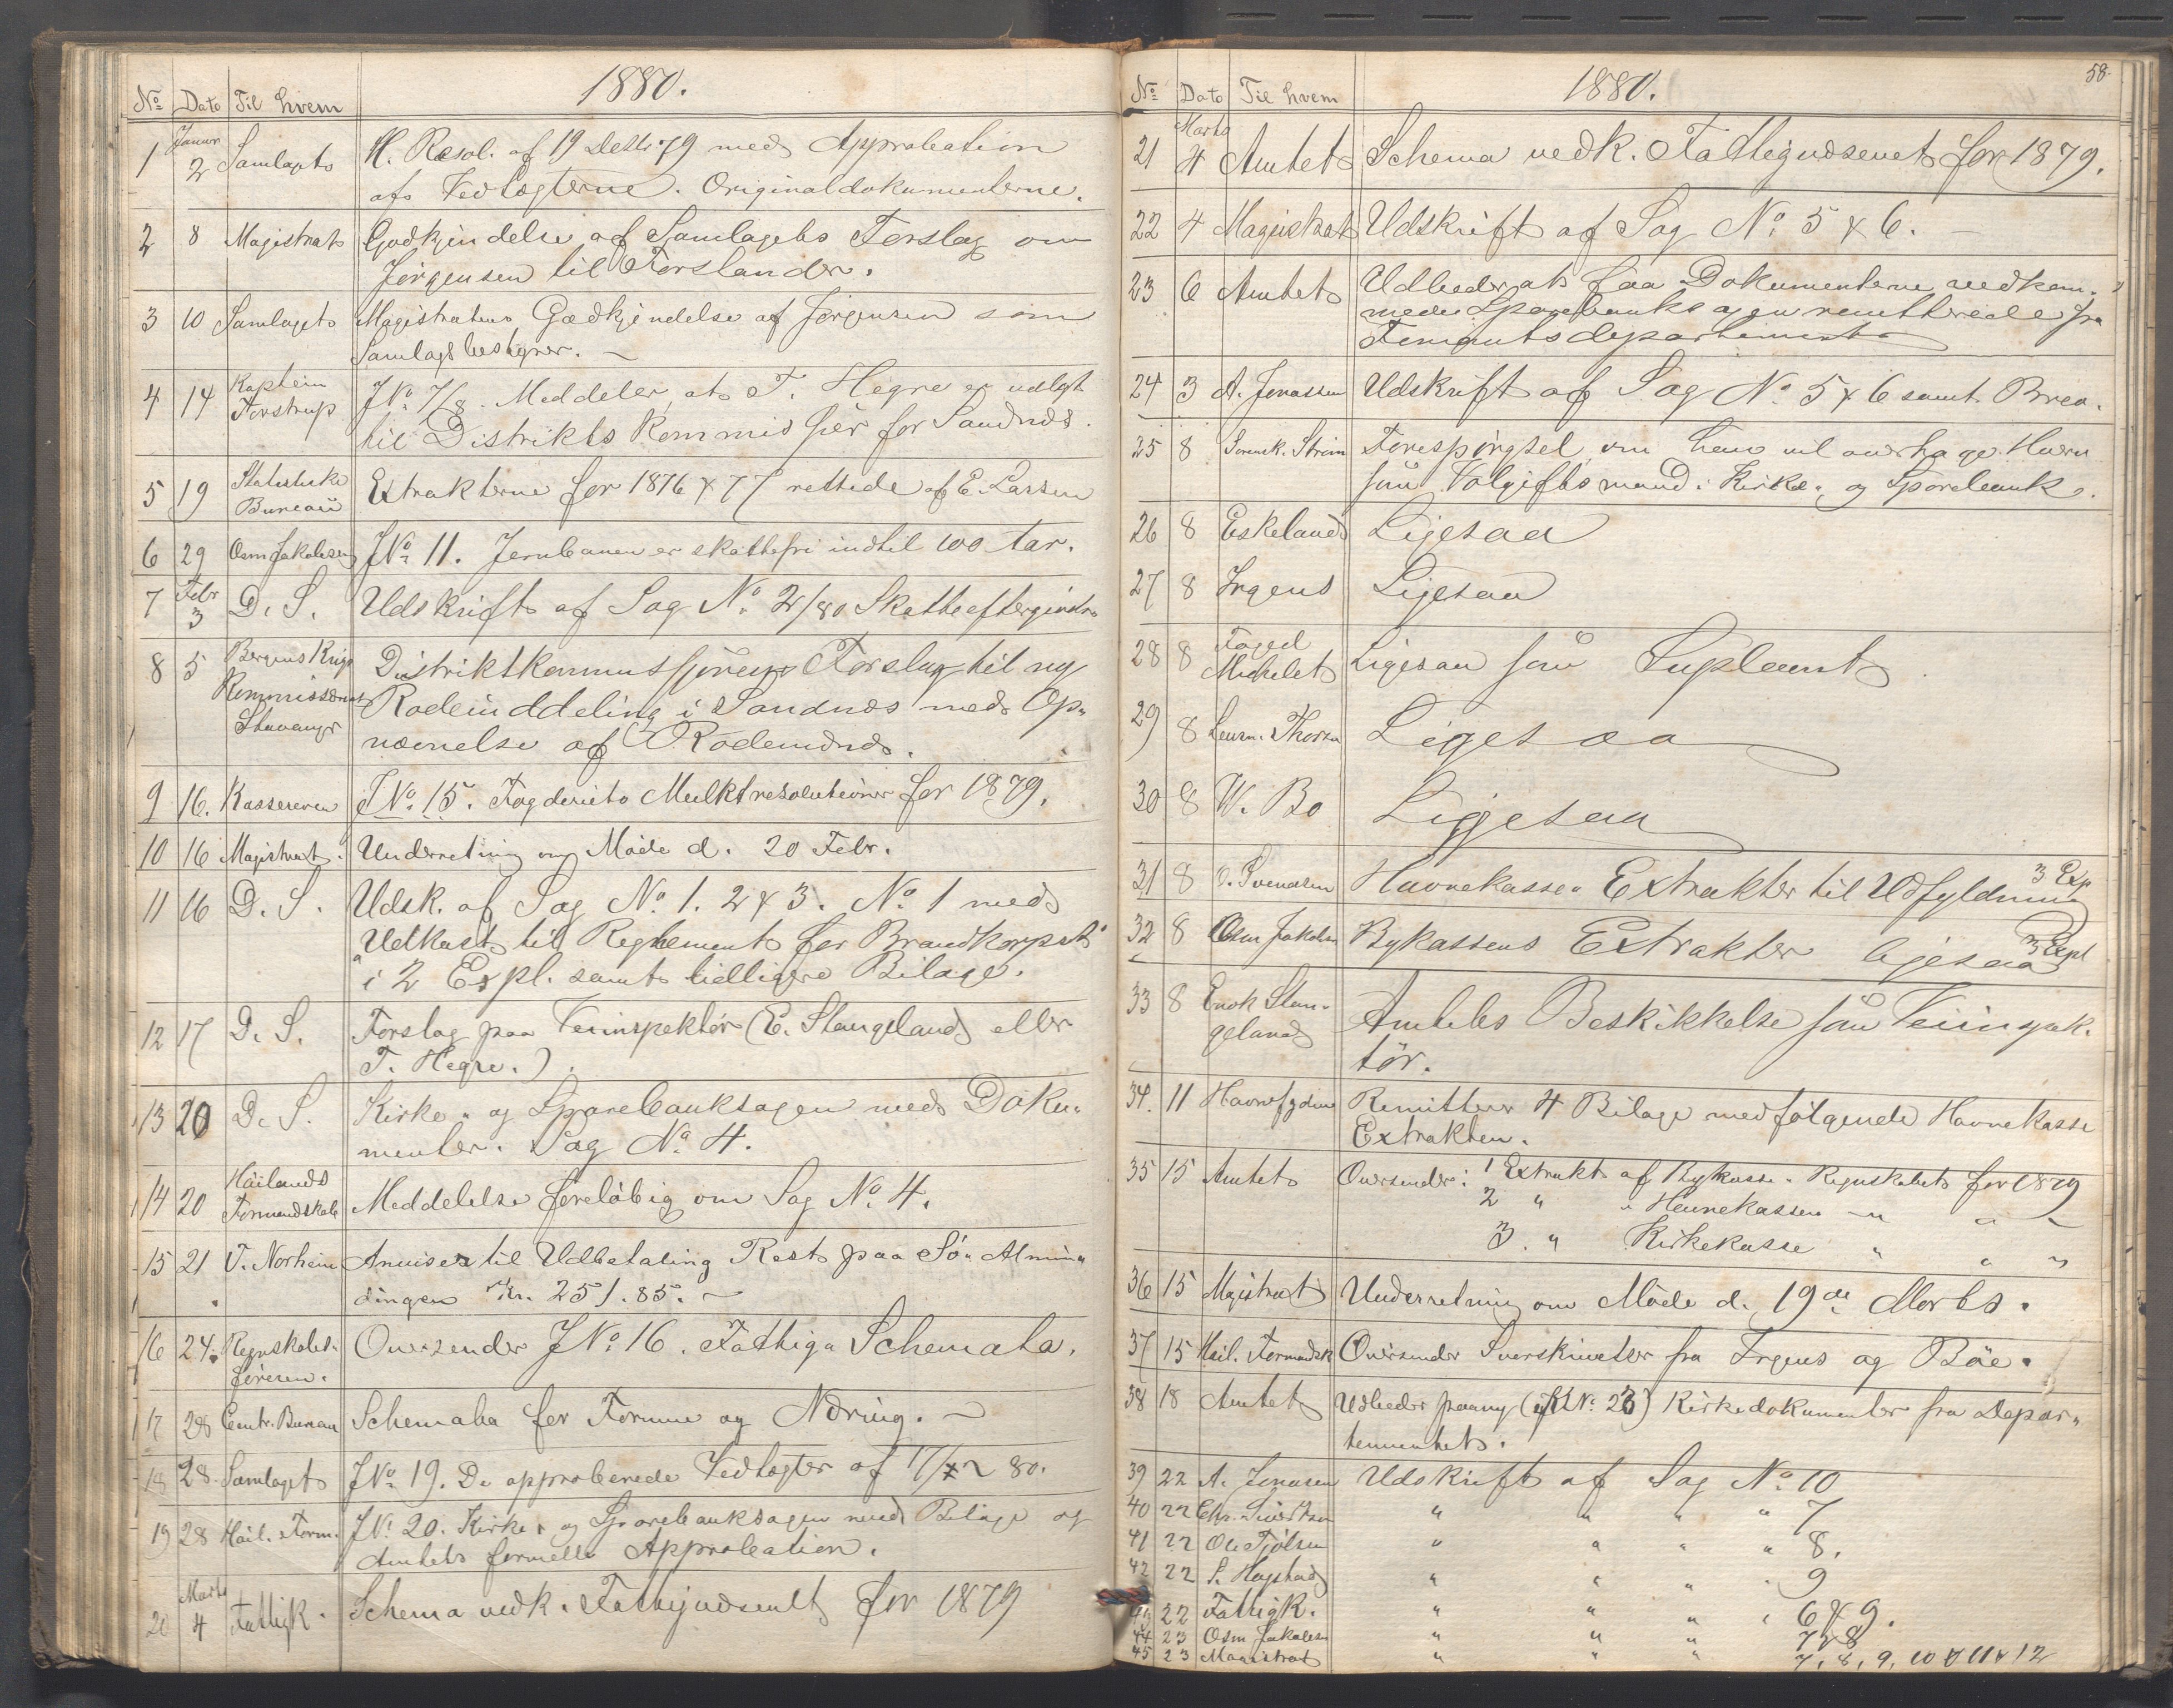 1880.
No Dato Til hvem
1 Januar 2 Samlaget K. Resol. af 19 Desbr 79 med Approbation
af Vedtægterne. Originaldokumenterne.
2 8 Magistrat Godkjendelse af Samlagets Forslag om
Jørgensen til Forstander.
3 10 Samlaget Magistratens Godkjendelse af Jørgensen som
Samlagsbestyrer.
4 14 Kaptein Torstrup JNo 7/8. Meddeler, at T. Hegre er valgt
til Distriktskommissær for Sandnæs.
5 19 Statistiske Bureau Extrakterne for 1876 & 77 rettede af E. Larsen
6 29 Osm Jakobsen JNo 11. Jernbanen er skattefri indtil 100 Aar.
7 Febr 3 D. S. Udskrift af Sag No 2/80 Skatteeftergivelse
8 5 Bergens Krigs Kommissariat Stavanger Distriktskommissærens Forslag til ny
Rodeinddeling i Sandnæs med Op-
nævnelse af Rodemænd.
9 16. Kassereren JNo 15. Fogderiets Mulktresolutioner for 1879.
10 16 Magistrat. Underretning om Møde d. 20 Febr.
11 16 D. S. Udsk. af Sag No 1. 2 & 3. No 1 med
"Udkast til Reglement for Brandkorpset"
i 2 Expl. samt tidligere Bilage.
12 17 D. S. Forslag paa Veiinspektør (E. Stangeland eller
T. Hegre.)
13 20 D. S. Kirke- og Sparebanksagen med Doku-
menter. Sag No 4.
14 20 Høilands Formandskab Meddelelse foreløbig om Sag No 4.
15 21 T. Norheim Anviser til Udbetaling Rest paa Sø- Almin-
dingen Kr. 251.85.
16 24. Regnskabsføreren. Oversender JNo 16. Fattig- Schemata.
17 28 Centr. Bureau Schemata for Formue og Næring.
18 28. Samlaget JNo 19. De approberede Vedtægter af 17/2 80.
19 28 Høil. Form. JNo 20. Kirke- og Sparebanksagen med Bilage og
Amtets formelle Approbation.
20 Marts 4 Fattigk. Schema vedk. Fattigvæsenet for 1879
58.
1880.
No Dato Til hvem
21 Marts 4 Amtet Schema vedk. Fattigvæsenet for 1879.
22 4 Magistrat Udskrift af Sag No 5 & 6.
23 6 Amtet Udbeder at faa Dokumenterne vedkom-
mende Sparebanksagen remitterede fra
Finantsdepartementet
24 3 A. Jonassen Udskrift af Sag No 5 & 6 samt Brev.
25 8 Sorensk. Strøm Forespørgsel, om han vil overtage Hverv
som Volgiftsmand i Kirke- og Sparebanks.
26 8 Eskeland Ligesaa
27 8 Irgens Ligesaa
28 8 Foged Michelet Ligesaa som Supleant
29 8 Ligesaa
30 8 W. Bø Ligesaa
31 8 O. Svendsen Havnekasse- Extrakter til Udfyldning 3 Exp
32 8 Osm Jakobsen Bykassens Extrakter ligesaa 3 Expl
33 8 Enok Stan-
geland Amtets Beskikkelse som Veiinspek-
tør.
34. 11 Havnefogden Remitterer 4 Bilage medfølgende Havnekasse
Extrakten.
35 15 Amtet Oversender: 1 Extrakt af Bykasse- Regnskabet for 1879
2 " " Havnekassen " " "
3. " Kirkekasse " " "
36 15 Magistrat Underretning om Møde d. 19de Marts.
37 15 Høil. Formandsk Oversender Svarskrivelser fra Irgens og Bøe.
38 18 Amtet Udbeder paany (cfr No 23) Kirkedokumenter fra Depar-
tementet.
39 22 A. Jonasen Udskrift af Sag No 10
40 22 Chr. Sivertsen " " " " 7
41 22 Ole Tjølsen " " " " 8.
42 22 S. Hagstad " " " " 9
43 22 Fattigk. " " " " 6 & 9.
44 23 Osm Jakobsen " " " 7 & 8
45 23 Magistrat " " " 7, 8, 9, 10 & 11 & 12